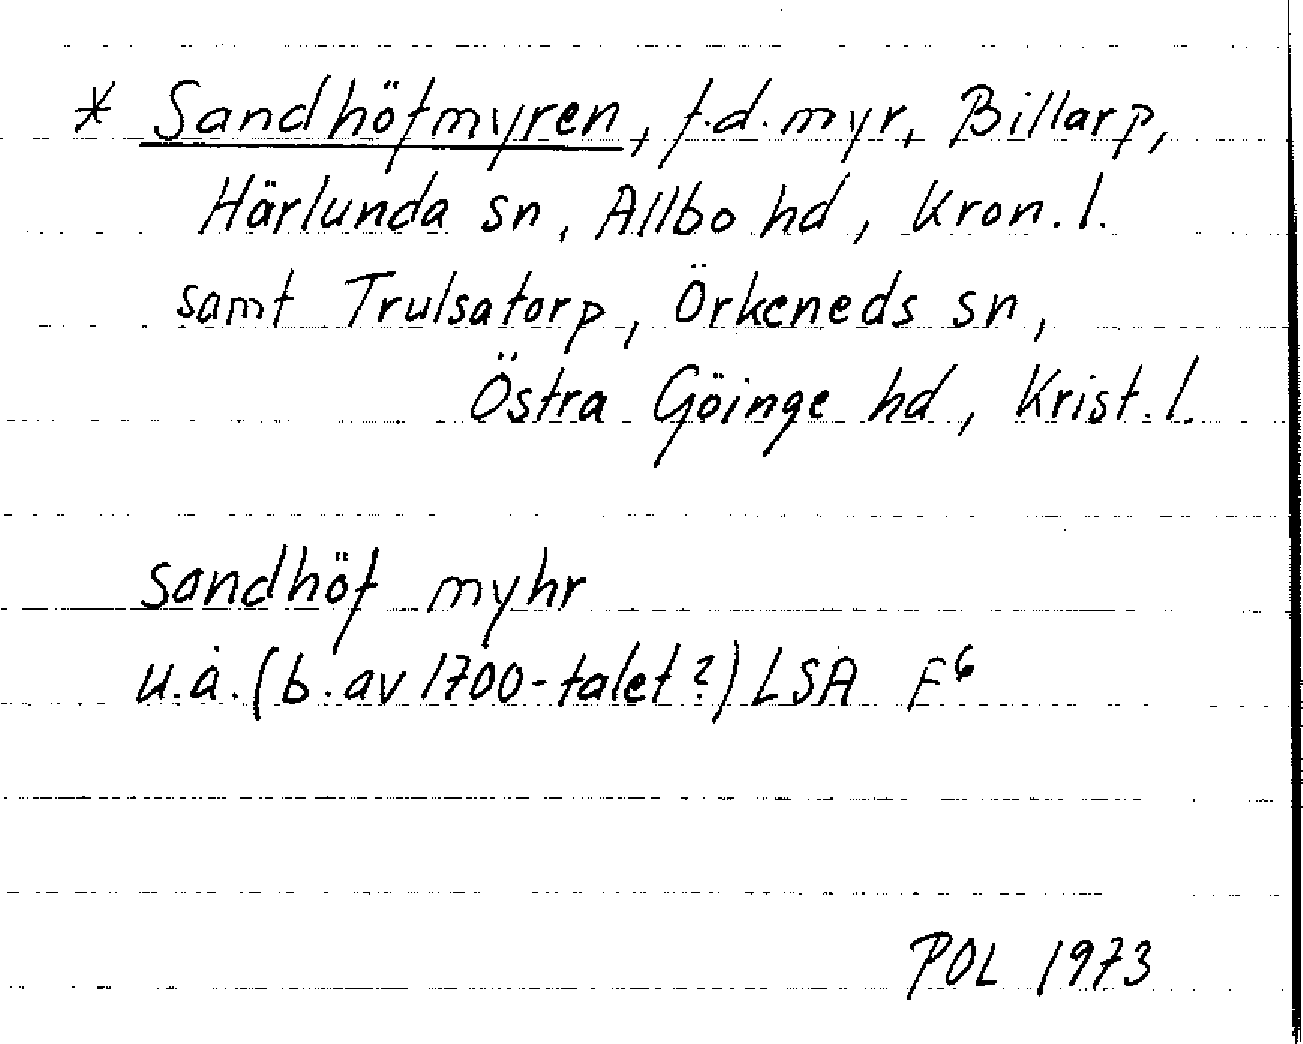 * Sandhöfmyren, f.d. myr, Billarp,
Härlunda sn, Allbo hd, Kron. l.
samt Trulsatorp, Örkeneds sn,
Östra Göinge hd, Krist. l.
sandhöf myhr
u.å. (b. av 1700-talet?) LSA F⁶
POL 1973